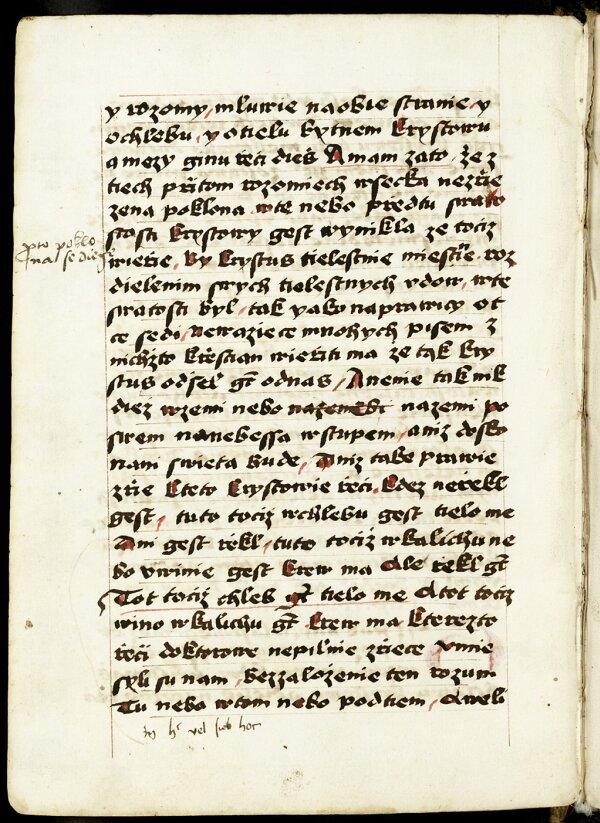 y rozomy, mluwie na obie stranie, y
o chlebu, y o tielu bytnem Krystowu
a mezy ginu řeči dieš Amam zato, že z
tiech přitom rozomiech wsecka nezřie
zena poklona wte nebo předtu swato
stosti Krystowy gest wynikla ze točiz
pro poklo
na se die
wieřie, by Krystus tielestnie miestře roz
dielenim swych tielestnych vdow, wte
swatosti byl, tak yako naprawicy ot
ce sedi, newaziece mnohych pisem z
nichžto křestian wieřiti ma ze tak kry
stus odsel gt odnas, A nenie tak nik
diež wzemi nebo nazemi po
swem nanebessa wstupem, aniz dokо
nani swieta bude, Aniz take prawie
zřie kteto krystowie řeči, kdez neřekl
gest, tuto točiz wchlebu gest tielo me
Ani gest řekl, tuto točiz wkalichu ne
bo vwinie gest krew ma Ale řekl gt
Tot točiz chleb gt tielo me A tot točiz
wino wkalichu gt krew ma kterezto
řeči doktorowe nepilnie zřiece vmie
syli su nam, bezzalozenie ten rozum
Tu nebo wtom nebo podtiem, A weli
vel sub hoc